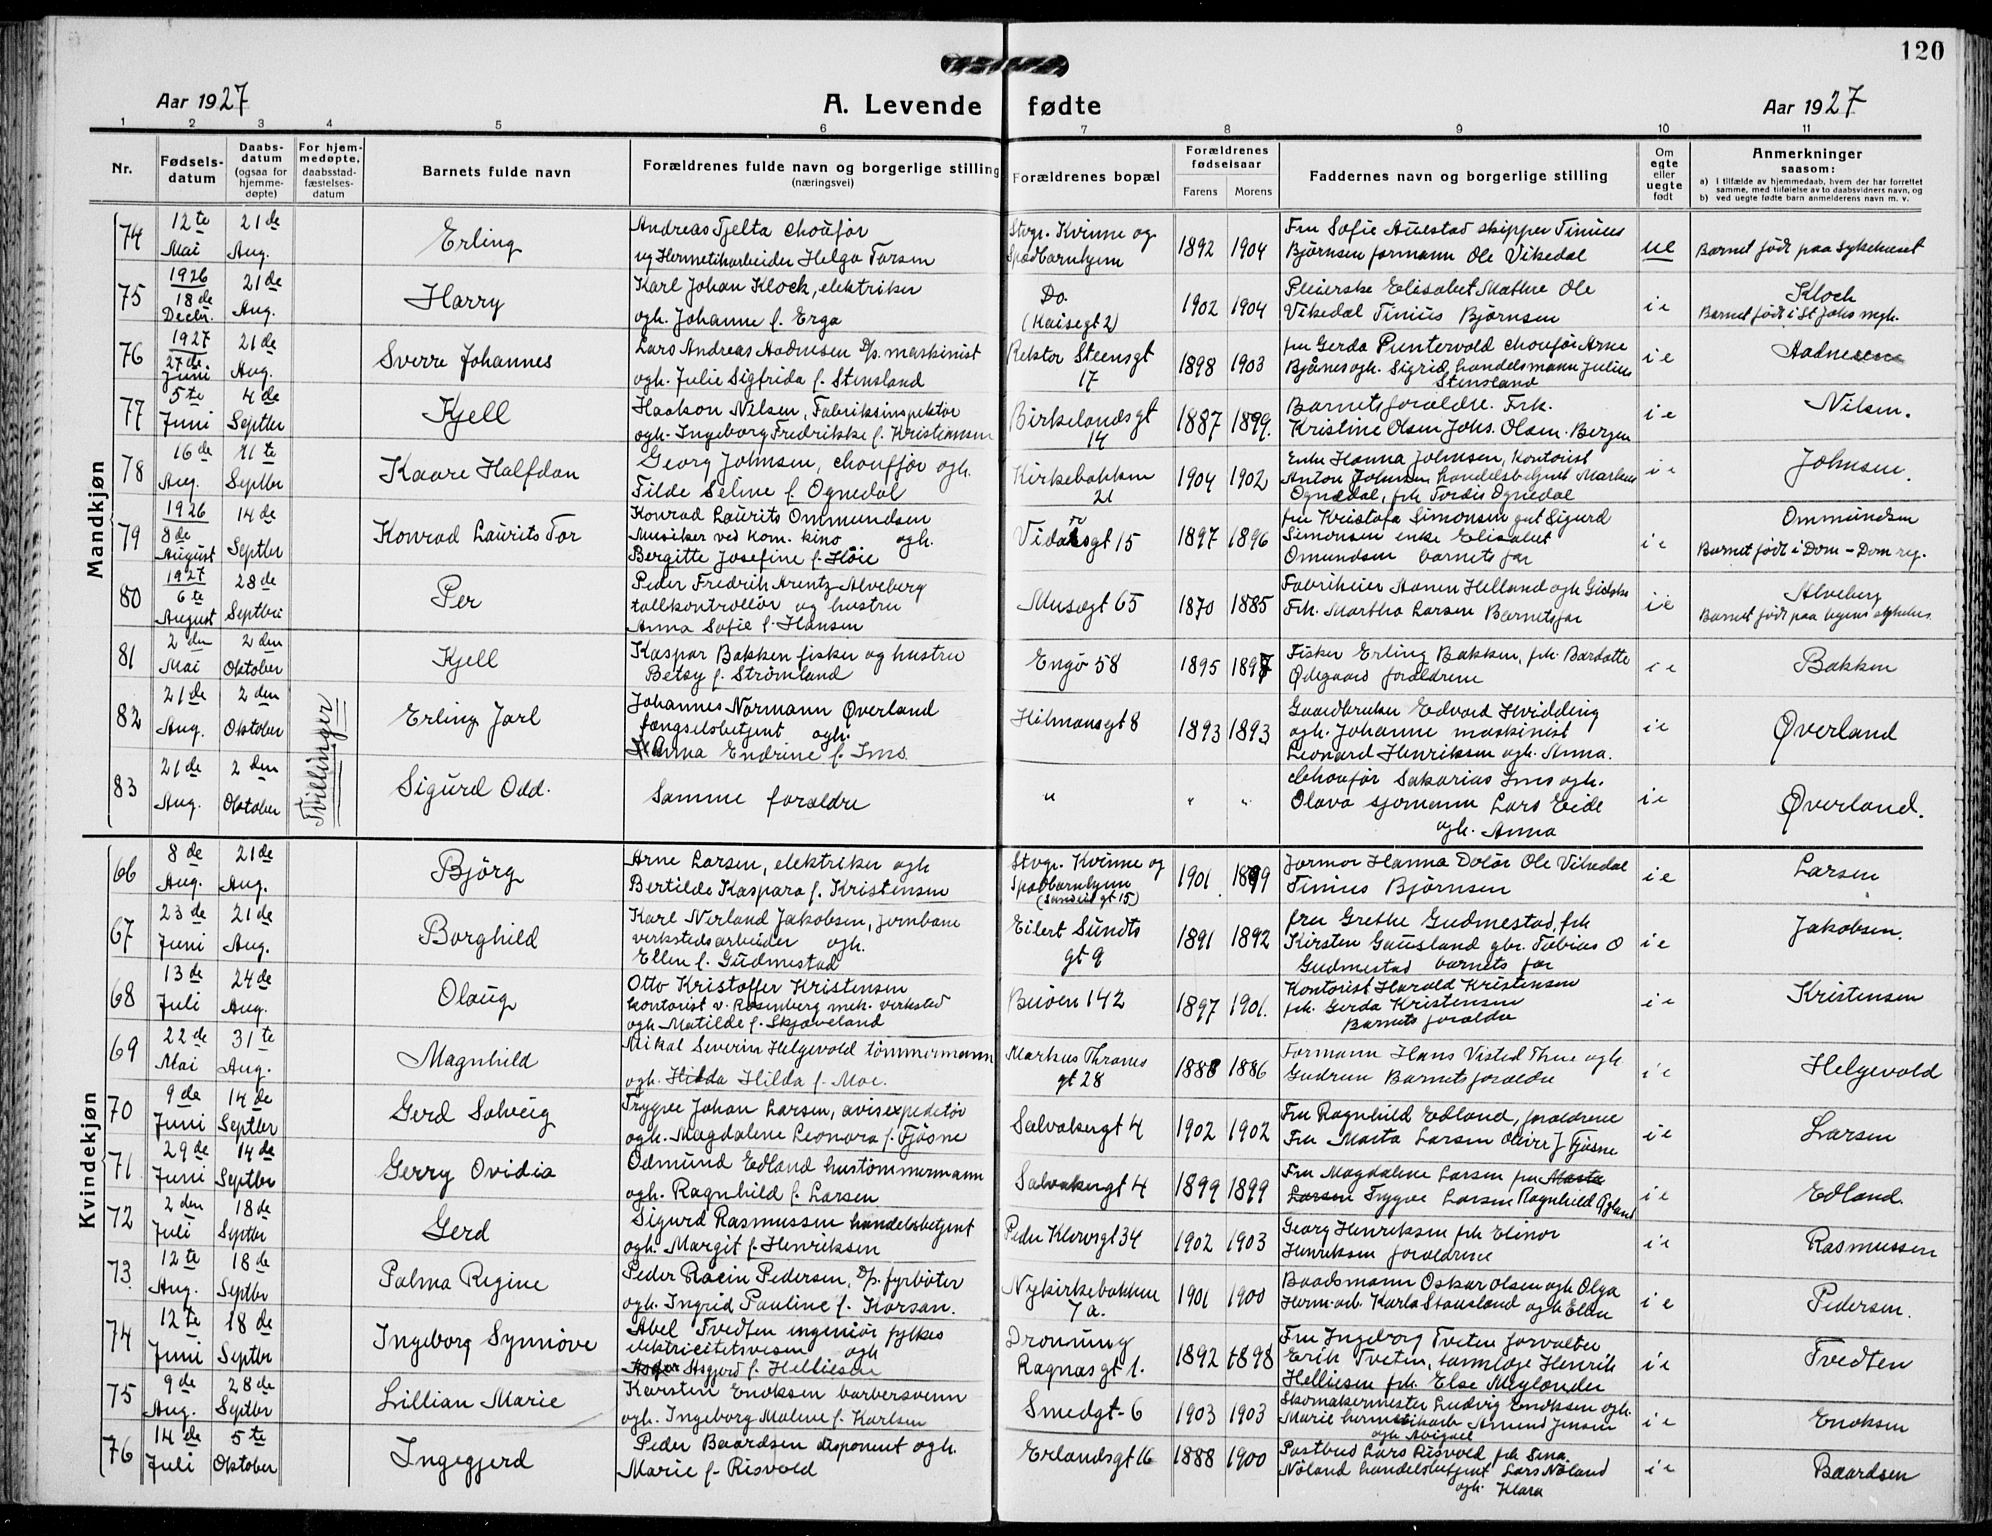 120
Aar 1927
A. Levende fødte
Aar 1927
1 2 3 4 5 6 7 8 9 10 11
Nr.
Fødsels-datum
Daabs-datum (ogsaa for hjemme-døpte)
For hjem-medøpte, daabsstad-fæstelses-datum
Barnets fulde navn
Forældrenes fulde navn og borgerlige stilling (næringsvei)
Forældrenes bopæl
Forældrenes fødselsaar
Farens Morens
Faddernes navn og borgerlige stilling
Om egte eller uegte født
Anmerkninger saasom:
a) I tilfælde av hjemmedaab, hvem der har forrettet samme, med tilføielse av to daabsvidners navn, og
b) ved uegte fødte barn anmelderens navn m. v.
Mandkjøn
74 12te Mai 21de Aug. Erling
Andreas Tjelta chouffør
og Hermetikarbeider Helga Tarsen
Stvgr. Kvinne og Spædbarnhjem
1892 1904
Fru Sofie Auestad skipper Tinius
Bjørnsen formann Ole Vikedal
ue
Barnet født paa sykehuset
75 1926 18de Decbr. 21de Aug. Harry
Karl Johan Klock, elektriker
ogh. Johanne f. Erga
Do. (Kaisegt 2)
1902 1904
Pleierske Elisabet Mathre Ole
Vikedal Tinius Bjørnsen
i e
Klock
Barnet født i St Johs mgh.
76 1927 27de Juni 21de Aug. Sverre Johannes
Lars Andreas Aadnesen D/p. maskinist
ogh. Julie Sigfrida f. Stensland
Rektor Steensgt 17
1898 1903
fru Gerda Puntervold chouffør Arne
Bjånes ogh. Sigrid, handelsmann Julius
Stensland
i e
Aadnesen
77 5te Juni 4de Septbr Kjell
Haakon Nilsen, Fabrikinspektør
ogh. Ingeborg Fredrikke f. Kristiansen
Birkelandsgt 14
1887 1899.
Barnets forældre. Frk.
Kristine Olsen Johs. Olsen. Bergen
i e
Nilsen.
78 16de Aug. 11te Septbr Kaare Halfdan
Georg Johnsen, chouffør ogh.
Tilde Selme f. Ognedal
Kirkebakken 21
1904 1902
Enke Hanna Johnsen, Kontorist
Anton Johnsen handelsbetjent Markus
Ognedal, frk Tordis Ognedal
i e
Johnsen.
79 1926 8de August 14de Septbr Konrad Laurits Tor
Konrad Laurits Ommundsen
Musiker ved kom. kino ogh.
Bergitte Josefine f. Høie
Vidarsgt 15
1897 1896
fru Kristofa Simonsen gut Sigurd
Simonsen enke Elisabet
Omundsen barnets far
i e
Ommundsen
Barnet født i Dom - Dom reg.
80 1927 6te August 28de Septbr Per
Peder Fredrik Arentz Alveberg
tollkontrollør og hustru
Anna Sofie f. Hansen
Musegt 65
1870 1885
Fabrikeier Aanen Helland ogh
Frk. Martha Larsen Barnets far
i e
Alveberg
Barnet født paa byens sykehus.
81 2den Mai 2den Oktober Kjell
Kaspar Bakken fisker og hustru
Betsy f. Strømland
Engø 58
1895 1897
Fisker Erling Bakken, frk. Bardotte
Ødegaard forældrene
i e
Bakken
82 21de Aug. 2den Oktober Erling Jarl
Tvillinger
Johannes Normann Øverland
fængselsbetjent ogh.
Anna Endrine f. Ims.
Hilmansgt 8
1893 1893
Gaardbruker Edvard Hvidding
ogh. Johanne maskinist
Leonard Henriksen ogh. Anna.
i e
Øverland
83 21de Aug. 2den Oktober Sigurd Odd.
Samme forældre
" " "
Chouffør Sakarias Ims ogh.
Olava sjømann Lars Eide
ogh. Anna
i e
Øverland.
Kvindekjøn
66 8de Aug. 21de Aug. Bjørg
Arne Larsen, elektriker ogh
Bertilde Kaspara f. Kristensen
Stvgr. Kvinne og Spædbarnhjem
1901 1899
Jormor Hanna Dolør Ole Vikedal
Tinius Bjørnsen
i e
Larsen
67 23de Juni 21de Aug. Borghild
Karl Nerland Jakobsen, jernbane
verkstedsarbeider ogh.
Ellen f. Gudmestad
Eilert Sundts gt 9
1891 1892
fru Grethe Gudmestad, frk
Kirsten Gausland gbr. Tobias O
Gudmestad barnets far
i e
Jakobsen.
68 13de Juli 24de Aug. Olaug
Otto Kristoffer Kristensen
kontorist v. Rosenberg mek. verksted
ogh. Matilde f. Skjæveland
Buøen 142
1897 1901.
Kontorist Harald Kristensen
frk. Gerda Kristensen
Barnets forældre
i e
Kristensen
69 22de Mai 31te Aug. Magnhild
Mikal Severin Helgevold tømmermann
ogh. Hilda Hilda f. Moe.
Markus Thranes gt 28
1888 1886
Formann Hans Visted Thue ogh
Gudrun Barnets forældre
i e
Helgevold
70 9de Juni 14de Septbr Gerd Solveig
Trygve Johan Larsen, avisexpeditør
ogh. Magdalene Leonora f. Fjøsne
Sølvbergt 4
1902 1902
Fru Ragnhild Edland, forældrene
Fru Marta Larsen Oliver J Fjøsne
i e
Larsen
71 29de Juni 14de Septbr Gerry Ovidia
Odmund Edland hustømmermann
ogh. Ragnhild f. Larsen
Sølvbergt 4
1899 1899
Fru Magdalene Larsen fru Marta
Larsen Trygve Larsen Ragnhild
i e
Edland.
72 2den Juli 18de Septbr Gerd
Sigurd Rasmussen handelsbetjent
ogh. Margit f. Henriksen
Peder Klowsgt 34
1902 1903
Georg Henriksen frk Elinor
Henriksen forældrene
i e
Rasmussen
73 12te Aug. 18de Septbr Palma Regine
Peder Racin Pedersen, D/p. fyrbøter
ogh. Ingrid Pauline f. Korsan.
Nykirkebakken 7a.
1901 1900
Baadsmann Oskar Olsen ogh Olga
Herm. arb. Karla Stausland ogh Ellen
i e
Pedersen.
74 12te Juni 18de Septbr Ingeborg Synnøve
Abel Tvedten ingeniør fylkes
elektricitetsvesen ogh
Asgjerd f. Helliesen
Dronning Ragnasgt 1.
1892 1898
Fru Ingeborg Tveten forvalter
Erik Tveten, tannlæge Henrik
Helliesen frk. Else Meylænder
i e
Tvedten
75 9de Aug. 28de Septbr Lillian Marie
Karsten Enoksen barbersvenn
ogh. Ingeborg Malene f. Karlsen
Smedgt-6
1903 1903
Skomakermester Ludvig Enoksen ogh.
Marie hermetikarb Amund Jensen
ogh Abigael
i e
Enoksen
76 14de Juli 5te Oktober Ingegjerd
Peder Baardsen disponent ogh.
Marie f. Risvold
Erlandsgt 16
1888 1900
Postbud Lars Risvold frk Sina
Nøland handelsbetjent Lars Nøland
ogh. Klara
i e
Baardsen